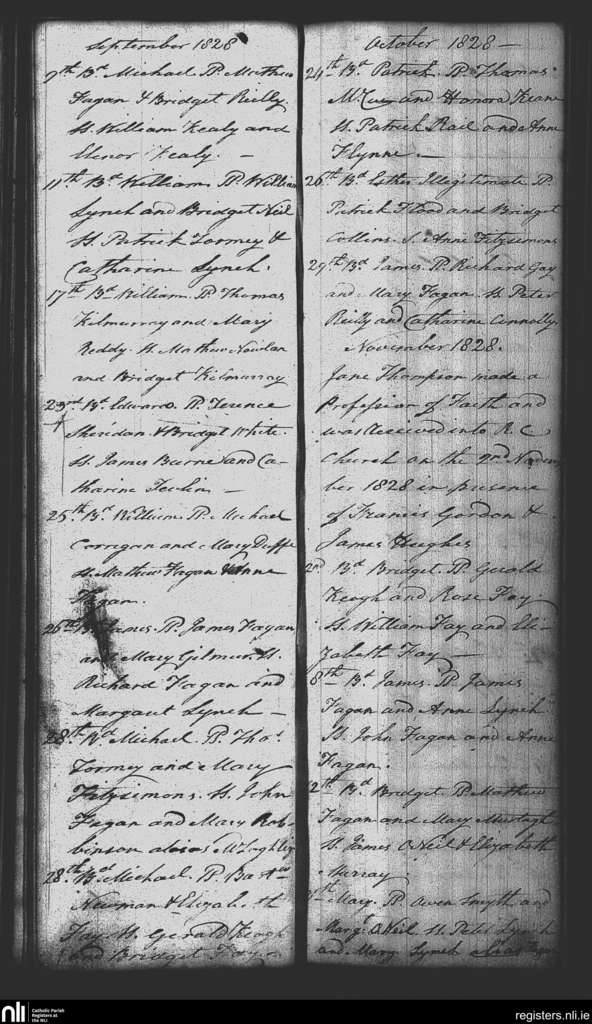 September 1828
9th Bd. Michael. P. Mathew
Fagan & Bridget Reilly.
S. William Kealy and
Elenor Kealy. —
11th. Bd William P. William
Lynch and Bridget Neil
S. Patrick Tormey &
Catharine Lynch.
17th Bd William. P. Thomas
Kilmurray and Mary
Reddy. S. Mathew Nowlan
and Bridget Kilmurray
23rd. Bd. Edward. P. Terence
Sheridan & Bridget White.
S. James Burne and Ca-
tharine Tevlin —
25th Bd. William. P. Michael
Corrigan and Mary Duffe
S. Mathew Fagan & Anne
Fagan.
26th James. P. James Fagan
and Mary Gilmur. S.
Richard Fagan and
Margaret Lynch —
28th Bd Michael. P. Thos.
Tormey and Mary
Fitzsimons. S. John
Fagan and Mary Rob-
binson alias
28th. Bd Michael. P. Bartw
Newman & Elizabeth
Fay. S. Gerald Keogh
and Bridget Fay.
October 1828 —
24th Bd. Patrick. P. Thomas
and Honora Keane
S. Patrick Rail and Anne
Flynne. —
26th Bd Esther Illegitimate P.
Patrick Flood and Bridget
Collins. S. Anne Fitzsimons
29th. Bd. James. P. Richard Gay
and Mary Fagan. S. Peter
Reilly and Catharine Connolly.
November 1828.
Jane Thompson made a
Profession of Faith and
was received into R. C
Church on the 2nd Novem
ber 1828 in presence
of Francis Gordon &
James Hughes
2d Bd. Bridget. P. Gerald
Keogh and Rose Fay.
S. William Fay and Eli-
zabeth Fay —
8th Bd James. P. James
Fagan and Anne Lynch
S. John Fagan and Anne
Fagan.
12th Bd. Bridget P. Mathew
Fagan and Mary Murtagh
S. James O Neil & Elizabeth
Murray.
Mary. P. Owen Smyth and
Margt. O Neil. S. Peter Lynch
and Mary Lynch alias
nli
Catholic Parish
Registers at
the NLI
registers.nli.ie